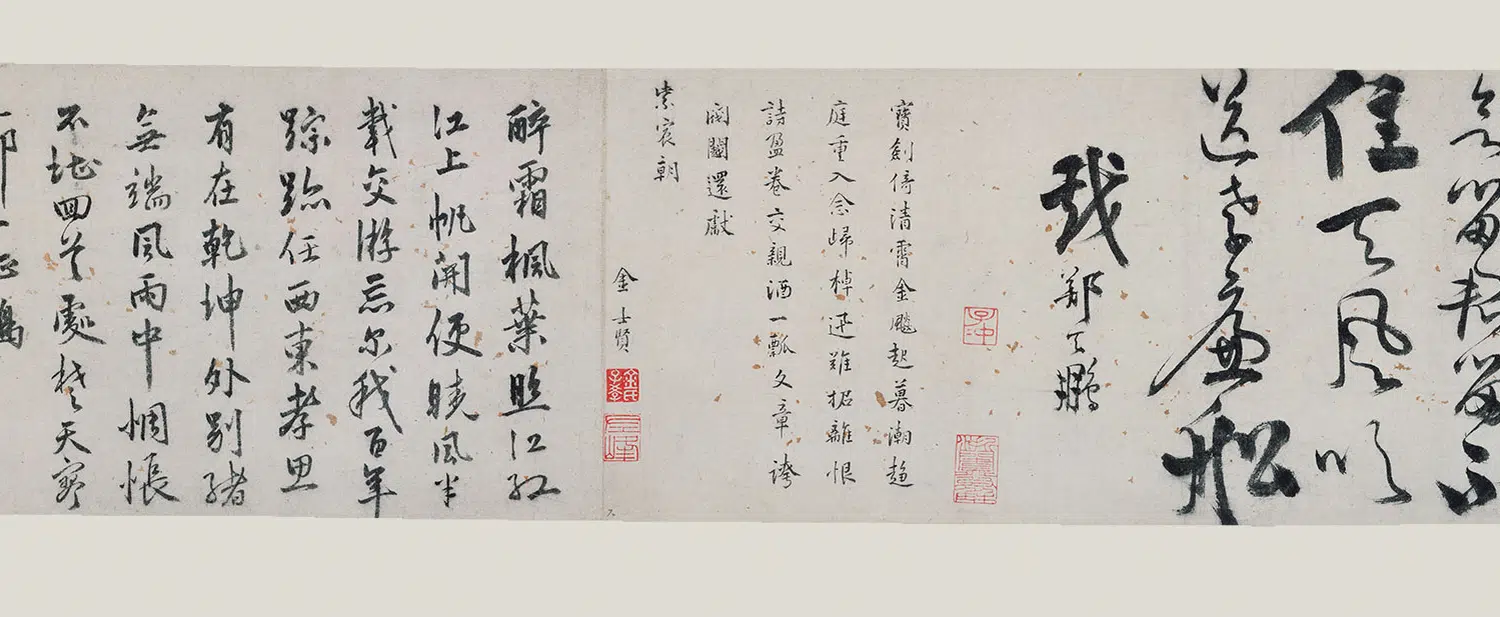 留君留不
住天風吹
送孝廉船
鄭鵬
子沖
寶劍倚清霄金飈起暮潮趨
庭重入念歸棹迅難招離恨
詩盈卷交親酒一瓢文章誇
還獻
紫宸朝
金士賢
醉霜楓葉照江紅
江上帆開便曉風半
載交游忘尔我百年
踪跡任西東孝思
有在乾坤外別緒
無端風雨中惆悵
不堪回首處楚天寥